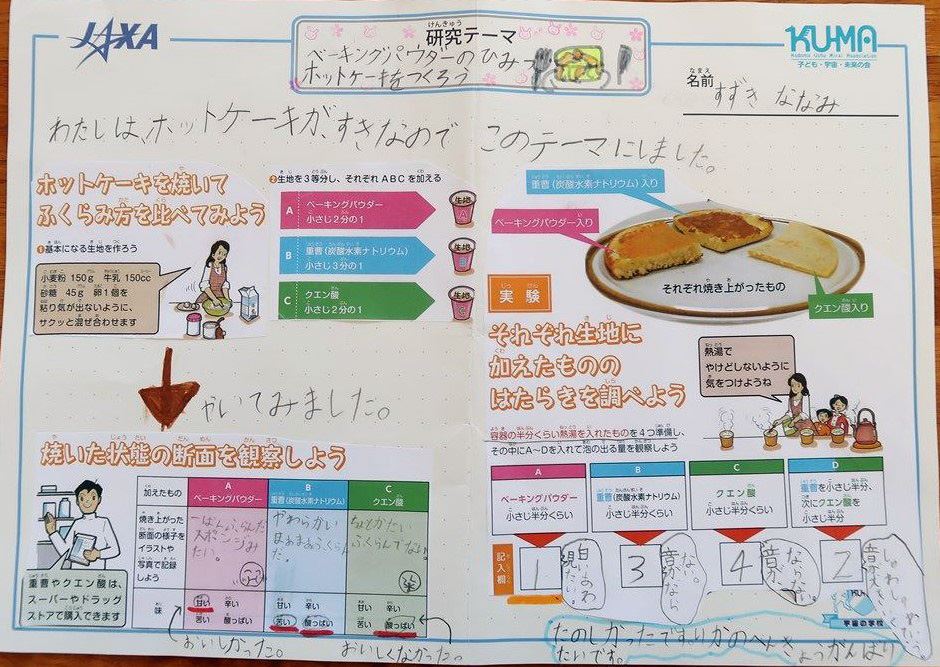 JAXA
研究テーマ
ベーキングパウダーのひみつ
ホットケーキをつくろう
KU-MA
Kodomo Uchu Mirai Association
子ども・宇宙・未来の会
名前
すずき ななみ
わたしは、ホットケーキが、すきなので このテーマにしました。
ホットケーキを焼いて
ふくらみ方を比べてみよう
❶基本になる生地を作ろう
小麦粉 150g 牛乳 150cc
砂糖 45g 卵1個を
粘り気が出ないように、
サクッと混ぜ合わせます
❷生地を3等分し、それぞれABCを加える
A ベーキングパウダー
小さじ2分の1
生地 A
B 重曹(炭酸水素ナトリウム)
小さじ3分の1
生地 B
C クエン酸
小さじ2分の1
生地 C
重曹(炭酸水素ナトリウム)入り
ベーキングパウダー入り
それぞれ焼き上がったもの
クエン酸入り
やいてみました。
焼いた状態の断面を観察しよう
重曹やクエン酸は、
スーパーやドラッグ
ストアで購入できます
加えたもの
A
ベーキングパウダー
B
重曹(炭酸水素ナトリウム)
C
クエン酸
焼き上がった
断面の様子を
イラストや
写真で記録
しよう
一ばんふくらんだ
スポンジみ
たい。
やわらかい
ふくらんでない。
味
甘い 辛い
苦い 酸っぱい
甘い 辛い
苦い 酸っぱい
甘い 辛い
苦い 酸っぱい
おいしかった。
おいしくなかった。
実験
それぞれ生地に
加えたものの
はたらきを調べよう
熱湯で
やけどしないように
気をつけようね
容器の半分くらい熱湯を入れたものを4つ準備し、
その中にA~Dを入れて泡の出る量を観察しよう
A
ベーキングパウダー
小さじ半分くらい
B
重曹(炭酸水素ナトリウム)
小さじ半分くらい
C
クエン酸
小さじ半分くらい
D
重曹を小さじ半分、
次にクエン酸を
小さじ半分
記入欄
1
白いあわ
3
音がなら
ない。
4
音が
2
宇宙の学校
たのしかったです。りかのべんきょうがんばり
たいです。